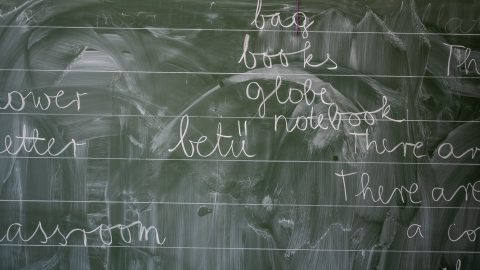 bag
books
Th
globe
ower
notebook
etter
betű
There ar
There are
assroom
a co